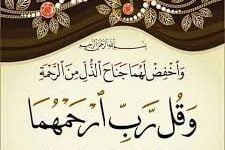 بسم الله الرحمن الرحيم
وَاخْفِضْ لَهُمَا جَنَاحَ الذُّلِّ مِنَ الرَّحْمَةِ
وَقُل رَّبِّ ٱرْحَمْهُمَا